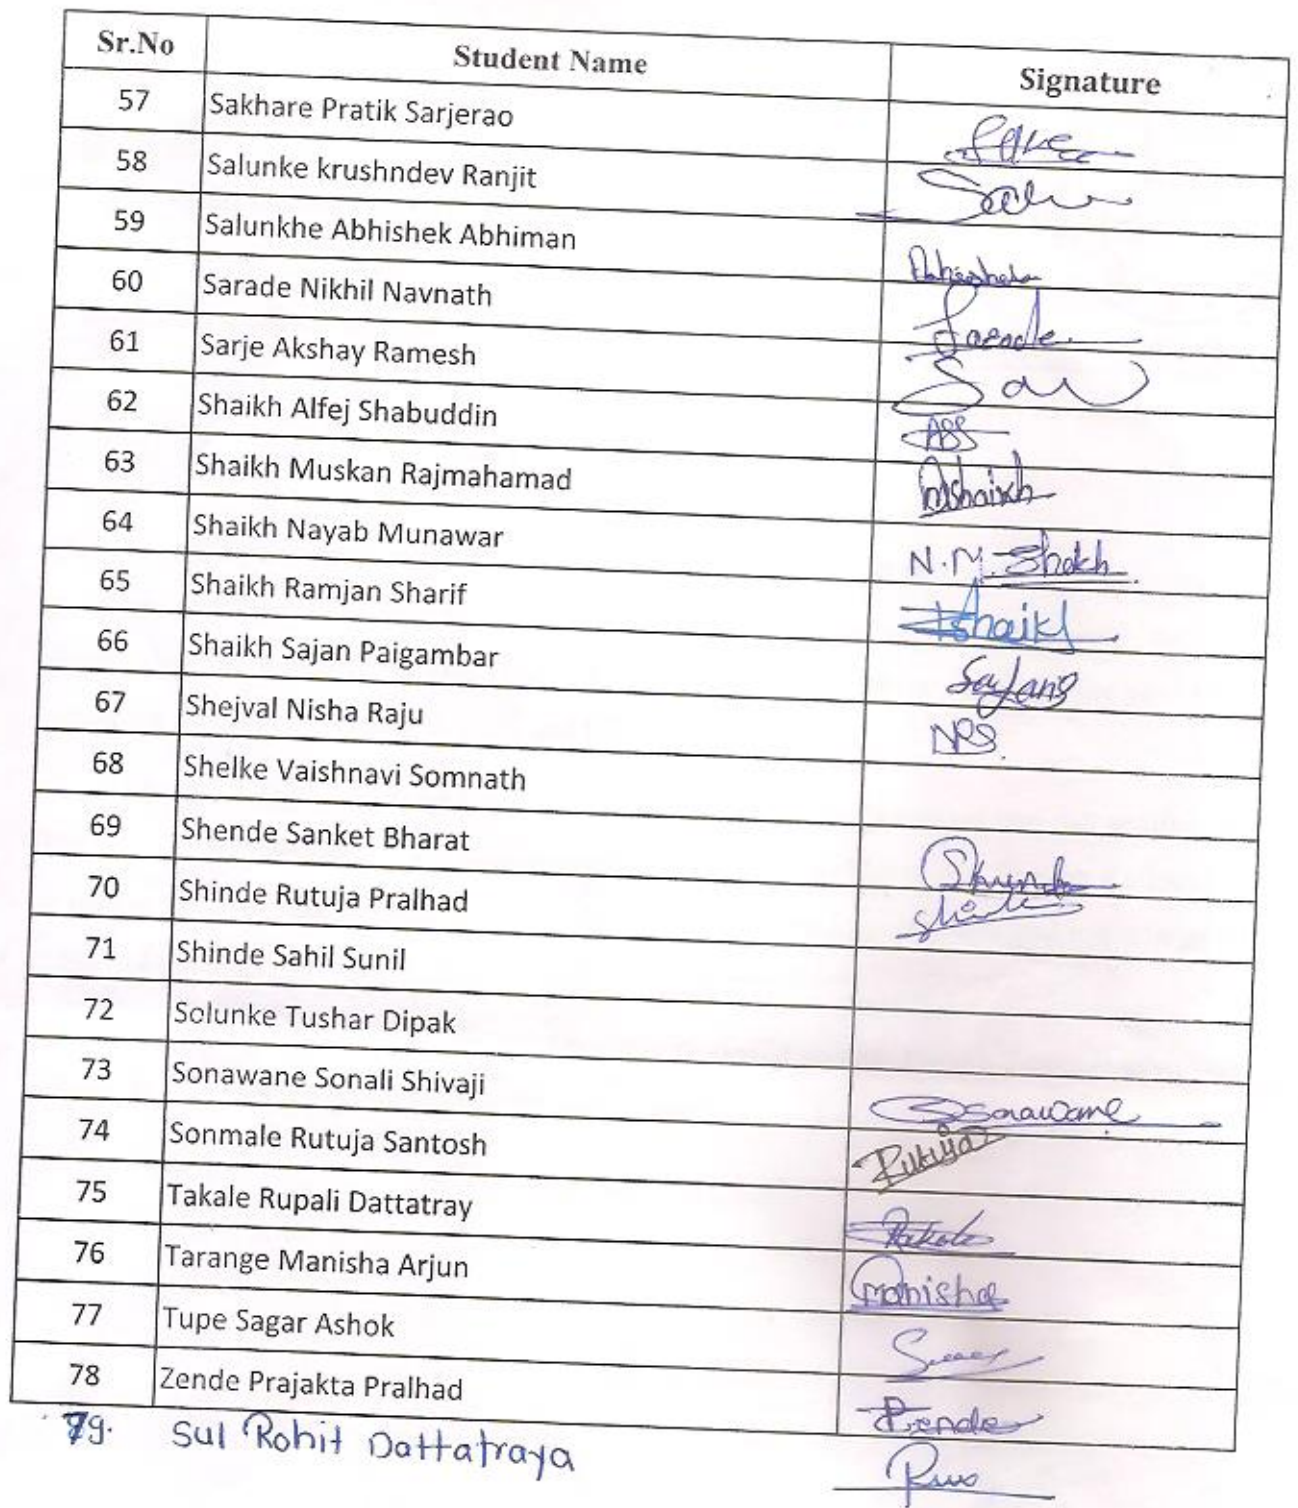 Sr.No Student Name Signature
57 Sakhare Pratik Sarjerao
58 Salunke krushndev Ranjit
59 Salunkhe Abhishek Abhiman
60 Sarade Nikhil Navnath
61 Sarje Akshay Ramesh
62 Shaikh Alfej Shabuddin ASS
63 Shaikh Muskan Rajmahamad Mshaikh
64 Shaikh Nayab Munawar N.M. Shekh
65 Shaikh Ramjan Sharif
66 Shaikh Sajan Paigambar
67 Shejval Nisha Raju NRS
68 Shelke Vaishnavi Somnath
69 Shende Sanket Bharat
70 Shinde Rutuja Pralhad
71 Shinde Sahil Sunil
72 Solunke Tushar Dipak
73 Sonawane Sonali Shivaji
74 Sonmale Rutuja Santosh Rutuja
75 Takale Rupali Dattatray
76 Tarange Manisha Arjun Manisha
77 Tupe Sagar Ashok
78 Zende Prajakta Pralhad
79. Sul Rohit Dattatraya